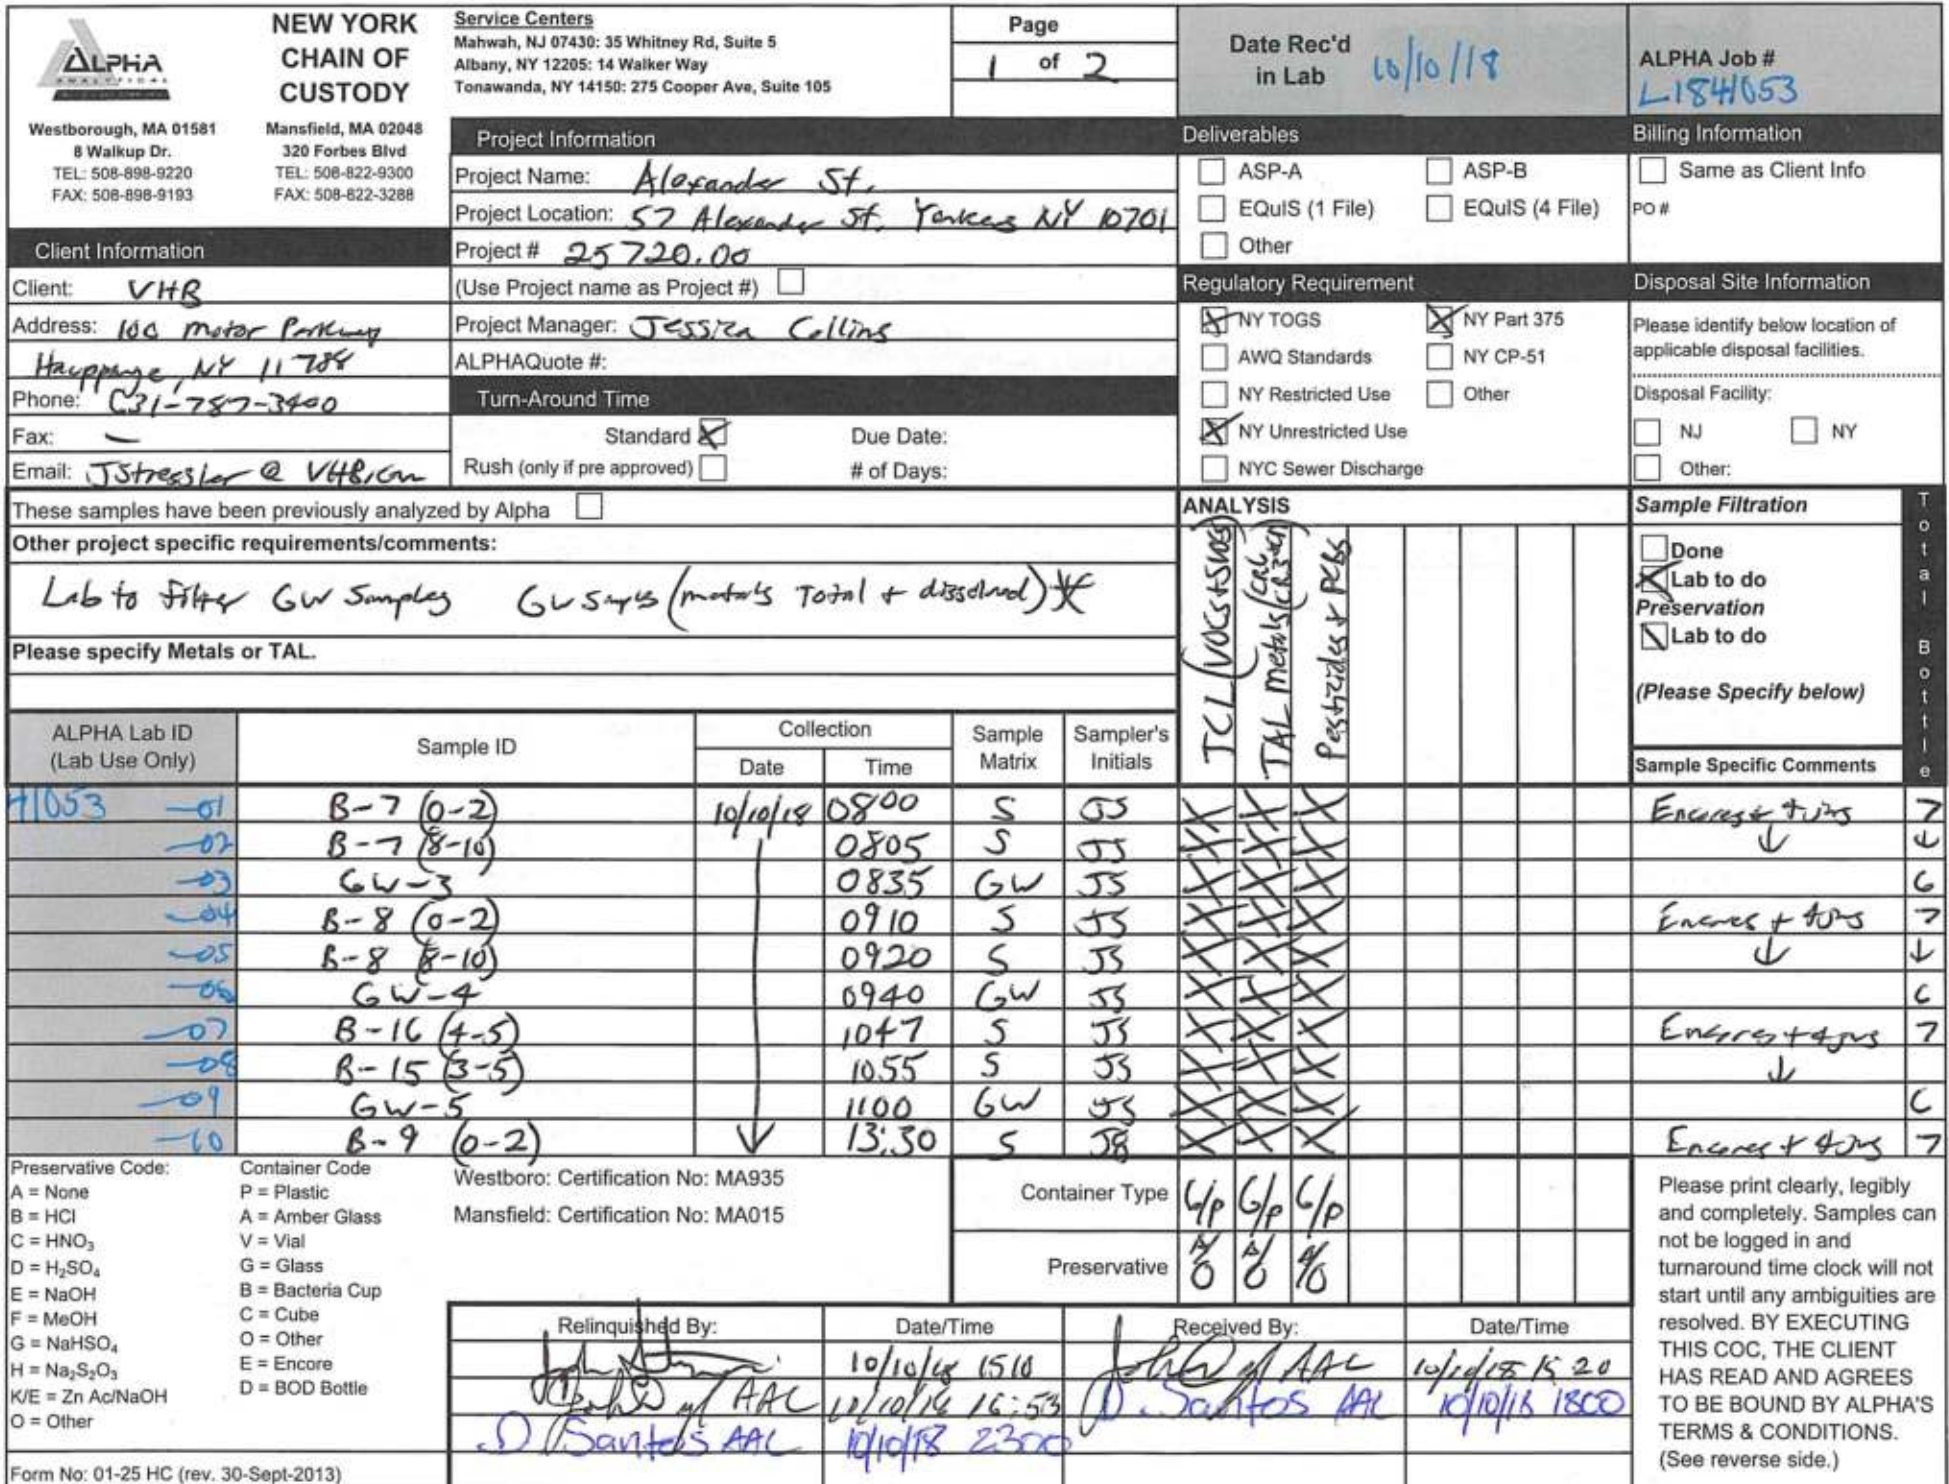 ALPHA
ANALYTICAL
Westborough, MA 01581
8 Walkup Dr.
TEL: 508-898-9220
FAX: 508-898-9193
NEW YORK
CHAIN OF
CUSTODY
Mansfield, MA 02048
320 Forbes Blvd
TEL: 508-822-9300
FAX: 508-822-3288
Service Centers
Mahwah, NJ 07430: 35 Whitney Rd, Suite 5
Albany, NY 12205: 14 Walker Way
Tonawanda, NY 14150: 275 Cooper Ave, Suite 105
Page
1 of 2
Date Rec'd
in Lab 10/10/18
ALPHA Job #
L1841053
Client Information
Client: VHB
Address: 100 Motor Parkway
Hauppauge, NY 11788
Phone: 631-787-3400
Fax: —
Email: JStressler @ VHB.com
Project Information
Project Name: Alexander St.
Project Location: 57 Alexander St. Yonkers NY 10701
Project # 25720.00
(Use Project name as Project #)
Project Manager: Jessica Collins
ALPHAQuote #:
Turn-Around Time
Standard X Due Date:
Rush (only if pre approved) # of Days:
Deliverables
ASP-A ASP-B
EQuIS (1 File) EQuIS (4 File)
Other
Regulatory Requirement
X NY TOGS X NY Part 375
AWQ Standards NY CP-51
NY Restricted Use Other
X NY Unrestricted Use
NYC Sewer Discharge
Billing Information
Same as Client Info
PO #
Disposal Site Information
Please identify below location of
applicable disposal facilities.
Disposal Facility:
NJ NY
Other:
These samples have been previously analyzed by Alpha
Other project specific requirements/comments:
Lab to filter GW Samples GW Samples (metals Total + dissolved) *
Please specify Metals or TAL.
ANALYSIS
TCL (VOCs+SVOCs)
TAL metals
Pesticides + PCBs
Sample Filtration
Done
X Lab to do
Preservation
\ Lab to do
(Please Specify below)
Sample Specific Comments
Total Bottle
ALPHA Lab ID
(Lab Use Only)
Sample ID
Collection
Date Time
Sample
Matrix
Sampler's
Initials
41053 -01 B-7 (0-2) 10/10/18 0800 S JS X X X Encores + 4 jars 7
-02 B-7 (8-10) 0805 S JS X X X ↓ ↓
-03 GW-3 0835 GW JS X X X 6
-04 B-8 (0-2) 0910 S JS X X X Encores + 4 jars 7
-05 B-8 (8-10) 0920 S JS X X X ↓ ↓
-06 GW-4 0940 GW JS X X X 6
-07 B-16 (4-5) 1047 S JS X X X Encores + 4 jars 7
-08 B-15 (3-5) 1055 S JS X X X ↓
-09 GW-5 1100 GW JS X X X 6
-10 B-9 (0-2) 13:30 S JS X X X Encores + 4 jars 7
Preservative Code:
A = None
B = HCl
C = HNO₃
D = H₂SO₄
E = NaOH
F = MeOH
G = NaHSO₄
H = Na₂S₂O₃
K/E = Zn Ac/NaOH
O = Other
Container Code
P = Plastic
A = Amber Glass
V = Vial
G = Glass
B = Bacteria Cup
C = Cube
O = Other
E = Encore
D = BOD Bottle
Westboro: Certification No: MA935
Mansfield: Certification No: MA015
Container Type G/P G/P G/P
Preservative A/O A/O A/O
Relinquished By: Date/Time Received By: Date/Time
10/10/18 1510 AAL 10/10/18 15 20
AAL 10/10/18 16:53 D. Santos AAL 10/10/18 1800
D Santos AAL 10/10/18 2300
Please print clearly, legibly
and completely. Samples can
not be logged in and
turnaround time clock will not
start until any ambiguities are
resolved. BY EXECUTING
THIS COC, THE CLIENT
HAS READ AND AGREES
TO BE BOUND BY ALPHA'S
TERMS & CONDITIONS.
(See reverse side.)
Form No: 01-25 HC (rev. 30-Sept-2013)